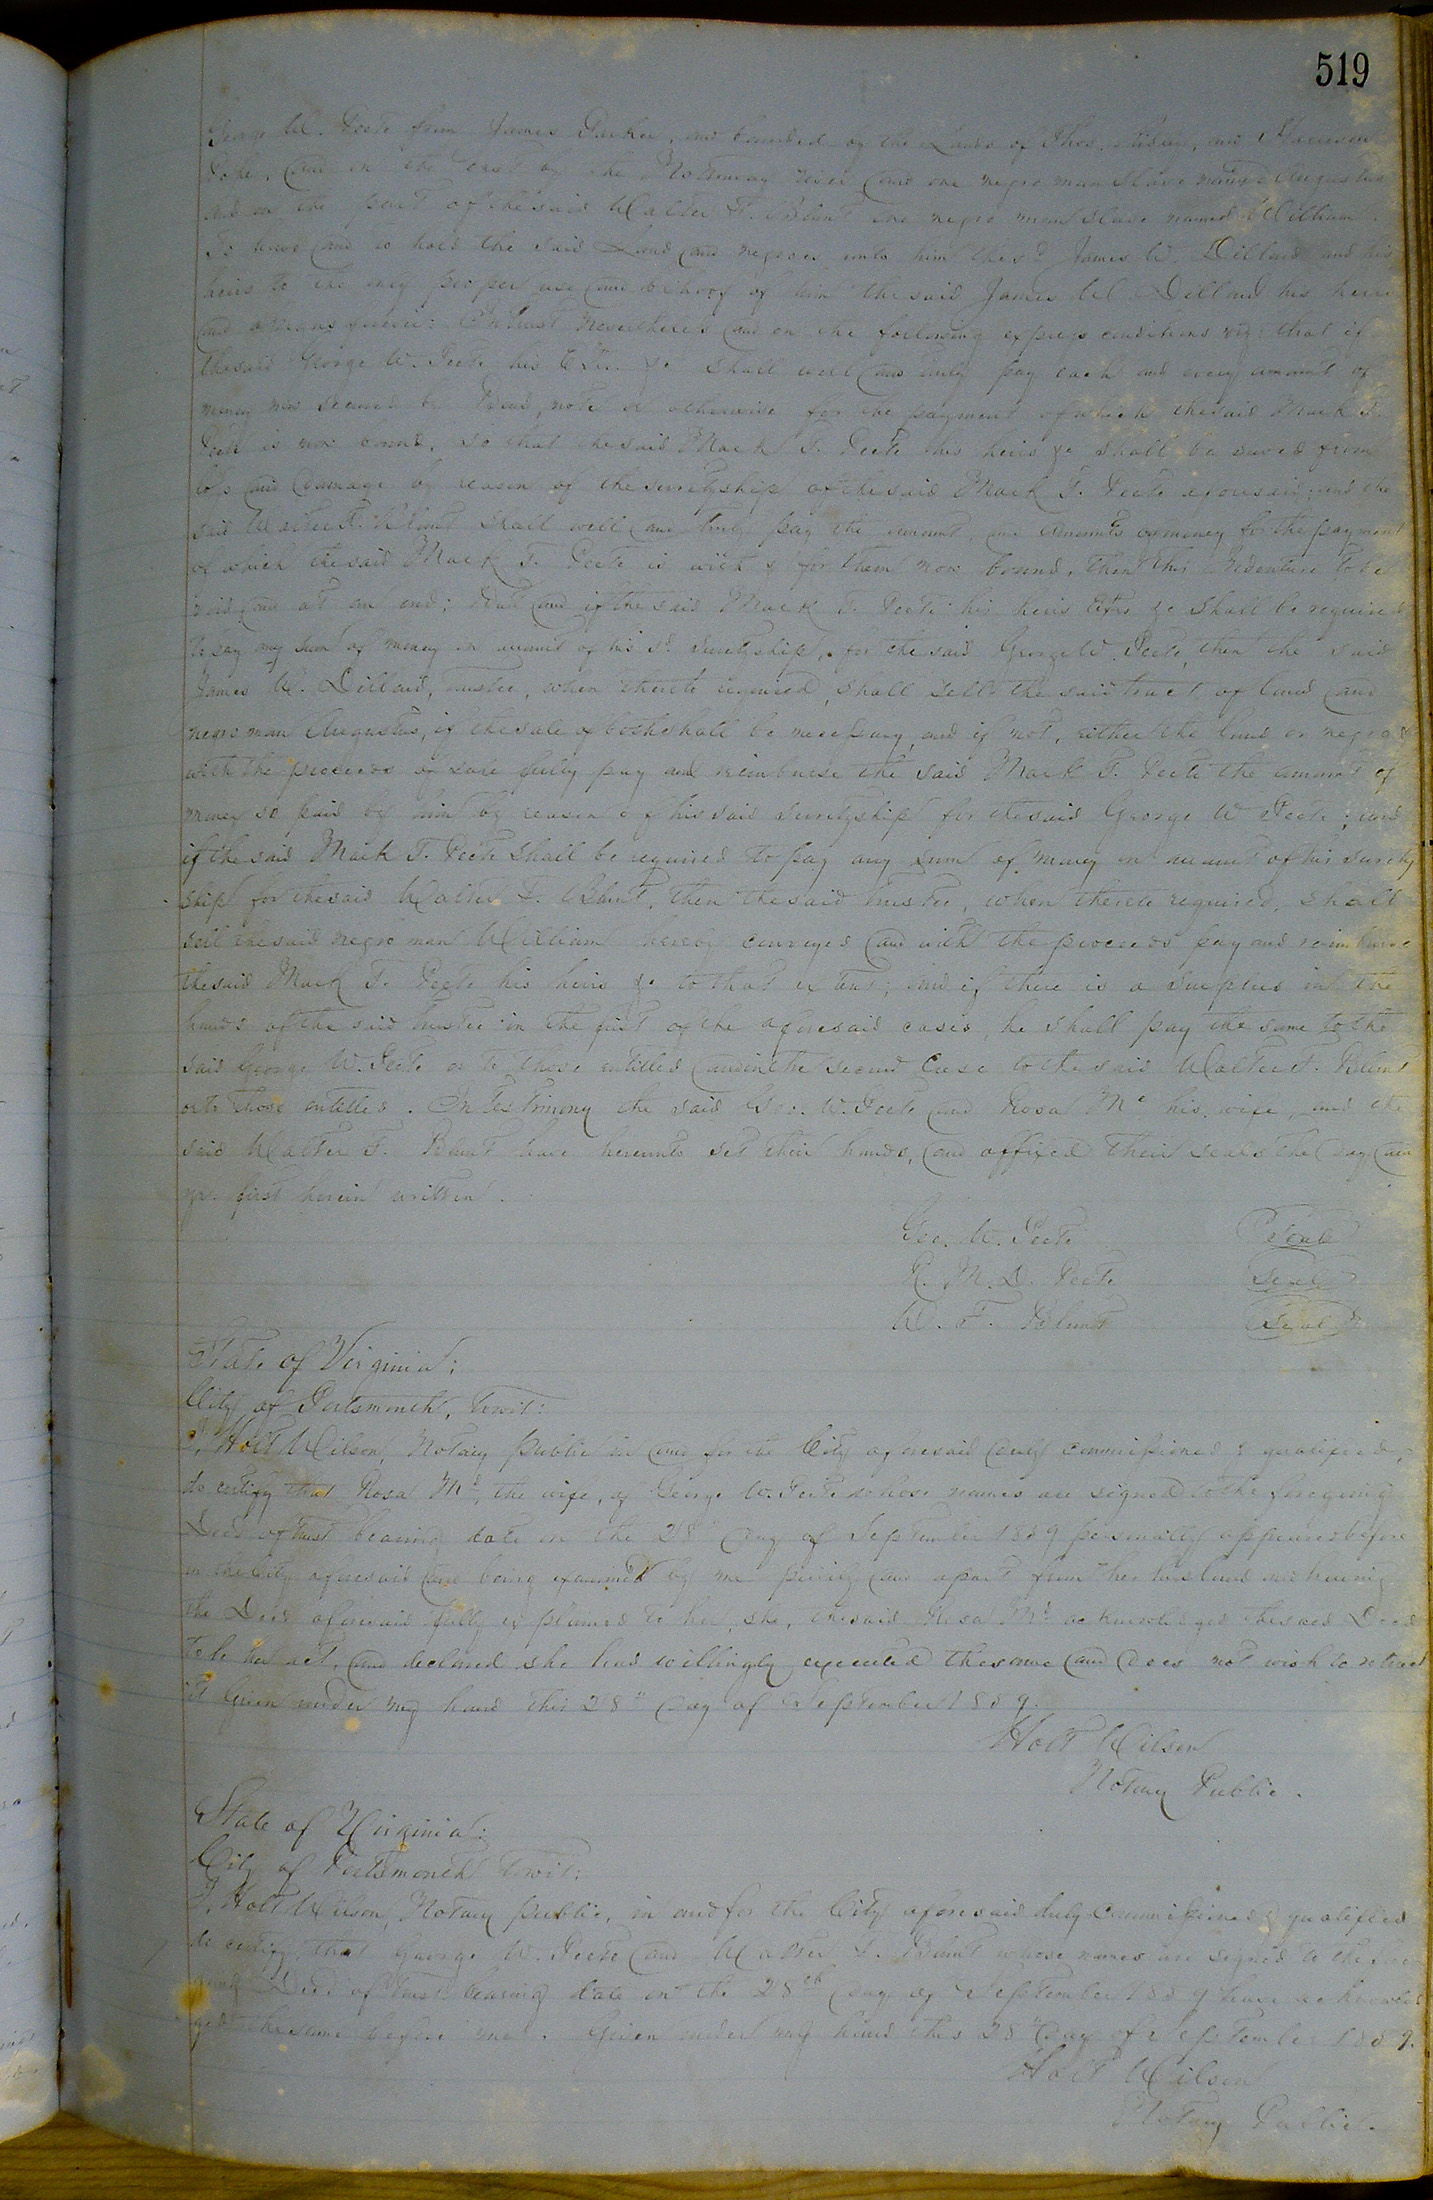 519
George W. Peete from James Parker, and bounded by the Lands of Thos. and
Pope, and on the East by the Nottoway river and one negro man Slave named Augustus
and on the part of the said Walter F. Blunt one negro man slave named William.
To have and to hold the said Land and negroes unto him the sd James W. Dillard and his
heirs to the only proper use and behoof of him the said James W. Dillard his heirs
and assigns forever: In trust nevertheless and on the following express conditions viz: that if
the said George W. Peete his Exr. &c shall well and truly pay each and every amount of
money now secured by Bond, note or otherwise for the payment of which the said Mark T.
Peete is now bound, so that the said Mark T. Peete his heirs &c shall be saved from
loss and damage by reason of the suretyship of the said Mark T. Peete aforesaid; and the
said Walter F. Blunt shall well and truly pay the amount, or amounts of money for the payment
of which the said Mark T. Peete is with & for them now bound, then this Indenture to be
void and at an end; But and if the said Mark T. Peete his heirs Exrs &c shall be required
to pay any sum of money on account of his sd suretyship, for the said George W. Peete, then the said
James W. Dillard, trustee, when thereto required, shall sell the said tract of land and
negro man Augustus, if the sale of both shall be necessary, and if not, either the land or negro &
with the proceeds of sale fully pay and reimburse the said Mark T. Peete the amount of
money so paid by him by reason of his said suretyship for the said George W Peete; and
if the said Mark T. Peete shall be required to pay any sum of money on account of his surety
ship for the said Walter F. Blunt, then the said trustee, when thereto required, shall
sell the said negro man William hereby conveyed and with the proceeds pay and reimburse
the said Mark T. Peete his heirs &c to that extent; and if there is a surplus in the
hands of the said trustee in the first of the aforesaid cases, he shall pay the same to the
said George W. Peete or to those entitled and in the second Case to the said Walter F. Blunt
or to those entitled. In testimony the said Geo. W. Peete and Rosa Mc his wife, and the
said Walter F. Blunt have hereunto set their hands, and affixed their seals the day and
yr. first herein written.
Geo. W. Peete Seal
R. M. D. Peete Seal
W. F. Blunt Seal
State of Virginia:
City of Portsmouth, towit:
I, Holt Wilson, Notary Public in and for the City aforesaid duly commissioned & qualified,
do certify that Rosa Mc, the wife, of George W. Peete whose names are signed to the foregoing
Deed of trust bearing date on the 28" day of September 1859 personally appeared before
in the City aforesaid and being examined by me privily and apart from her husband and having
the Deed aforesaid fully explained to her, she, the said Rosa Mc acknowledged the said Deed
to be her act, and declared she had willingly executed the same and does not wish to retract
it Given under my hand this 28" day of September 1859.
Holt Wilson
Notary Public.
State of Virginia:
City of Portsmouth towit:
I, Holt Wilson, Notary public, in and for the City aforesaid duly Commissioned & qualified
do certify that George W. Peete and Walter F. Blunt whose names are signed to the fore
going Deed of trust bearing date on the 28th day of September 1859 have acknowled
ged the same before me. Given under my hand this 28" day of September 1859.
Holt Wilson
Notary Public.